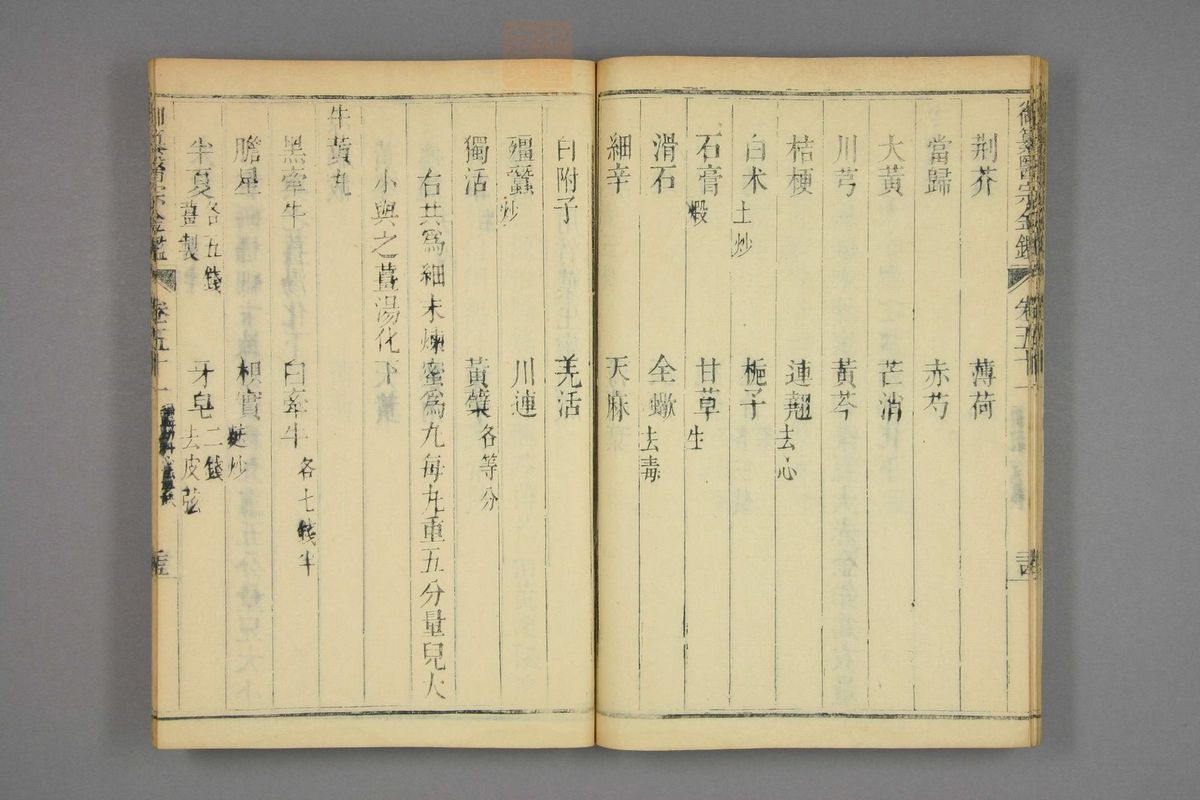 荆芥 薄荷
當歸 赤芍
大黃 芒消
川芎 黃芩
桔梗 連翹去心
白术土炒 梔子
石膏煅 甘草生
滑石 全蠍去毒
細辛 天麻
白附子 羌活
殭蠶炒 川連
獨活 黃蘗各等分
右共爲細末煉蜜爲丸每丸重五分量兒大
小與之薑湯化下
牛黃丸
黑牽牛 白牽牛各七錢半
膽星 枳實麩炒
半夏各五錢薑製 牙皂二錢去皮弦
御纂醫宗金鑑 卷五十一